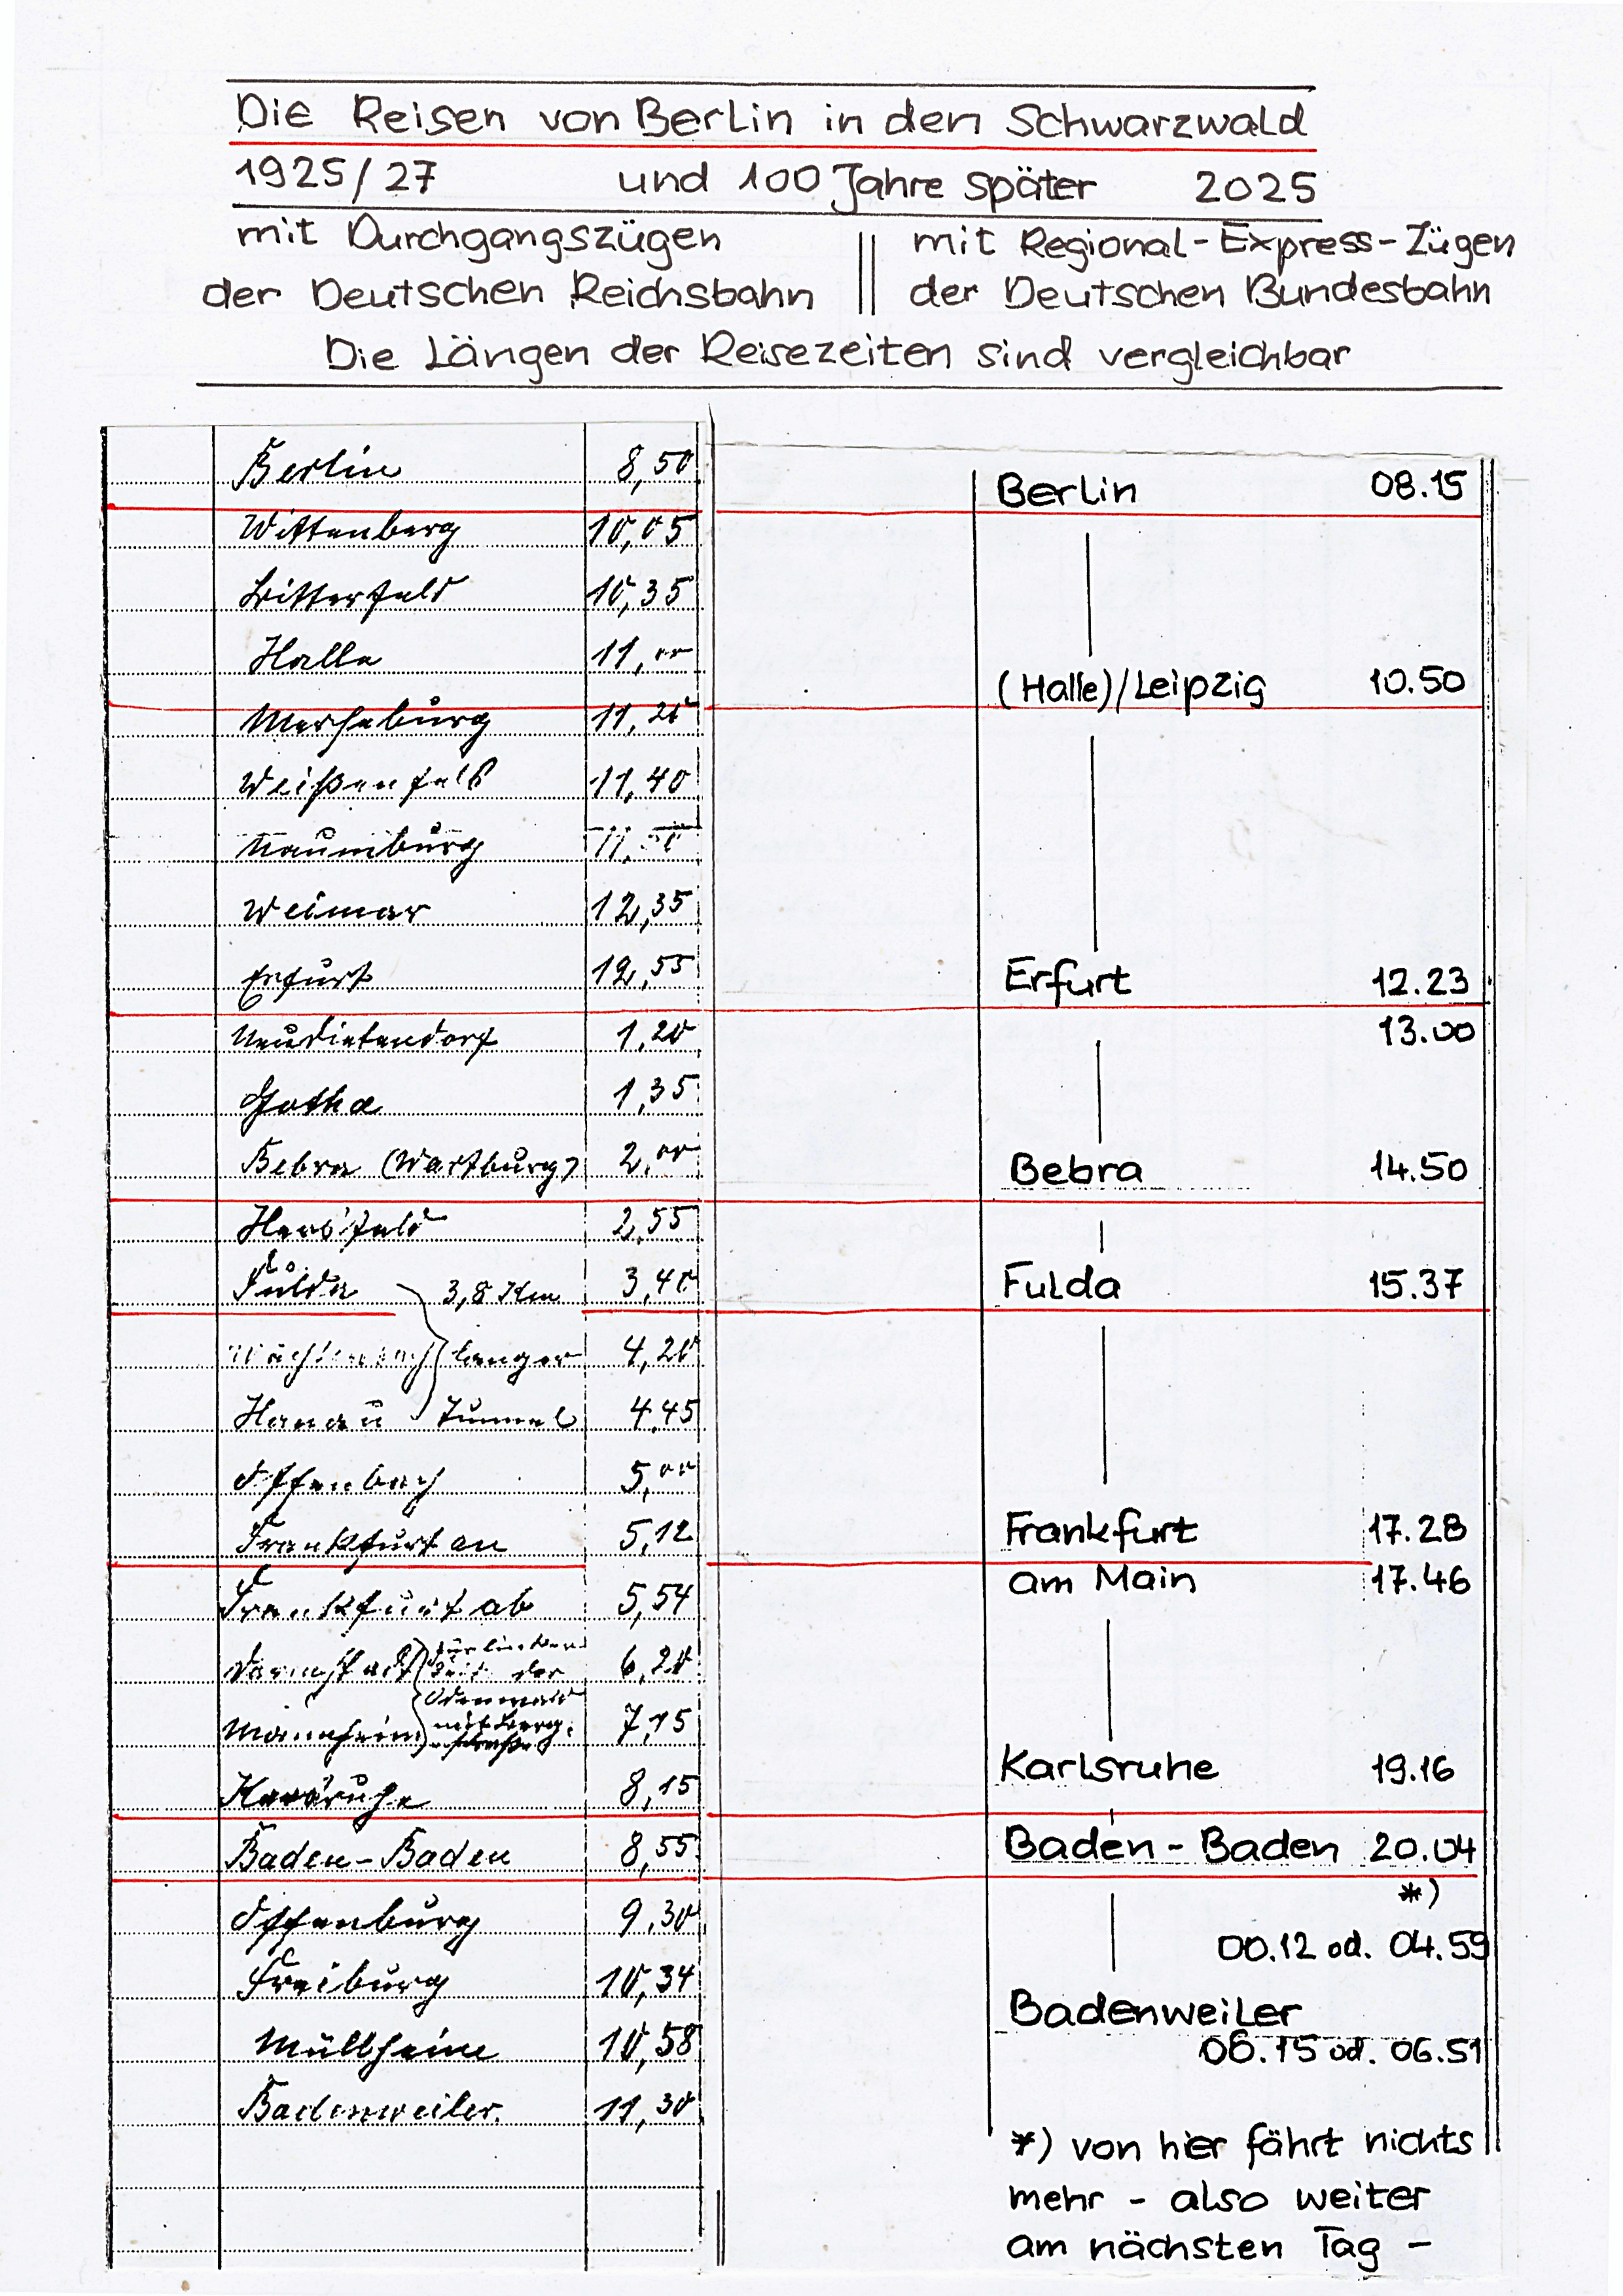 Die Reisen von Berlin in den Schwarzwald
1925/27 und 100 Jahre später 2025
mit Durchgangszügen
der Deutschen Reichsbahn
mit Regional-Express-Zügen
der Deutschen Bundesbahn
Die Längen der Reisezeiten sind vergleichbar
Berlin 8,50
Wittenberg 10,05
Bitterfeld 10,35
Halle 11,00
Merseburg 11,20
Weißenfels 11,40
Naumburg
Weimar 12,35
Erfurt 12,55
Neudietendorf 1,20
Gotha 1,35
Bebra (Wartburg) 2,00
Hersfeld 2,55
Fulda 3,8 Km 3,40
Wächtersbach langer 4,20
Hanau Tunnel 4,45
Offenbach 5,00
Frankfurt an 5,12
Frankfurt ab 5,54
Darmstadt der 6,20
Odenwald
Mannheim mit Berg- 7,15
straße
Karlsruhe 8,15
Baden-Baden 8,55
Offenburg 9,30
Freiburg 10,34
Müllheim 10,58
Badenweiler. 11,30
Berlin 08.15
(Halle)/Leipzig 10.50
Erfurt 12.23
13.00
Bebra 14.50
Fulda 15.37
Frankfurt 17.28
am Main 17.46
Karlsruhe 19.16
Baden-Baden 20.04
*)
00.12 od. 04.59
Badenweiler
06.15 od. 06.51
*) von hier fährt nichts
mehr - also weiter
am nächsten Tag -